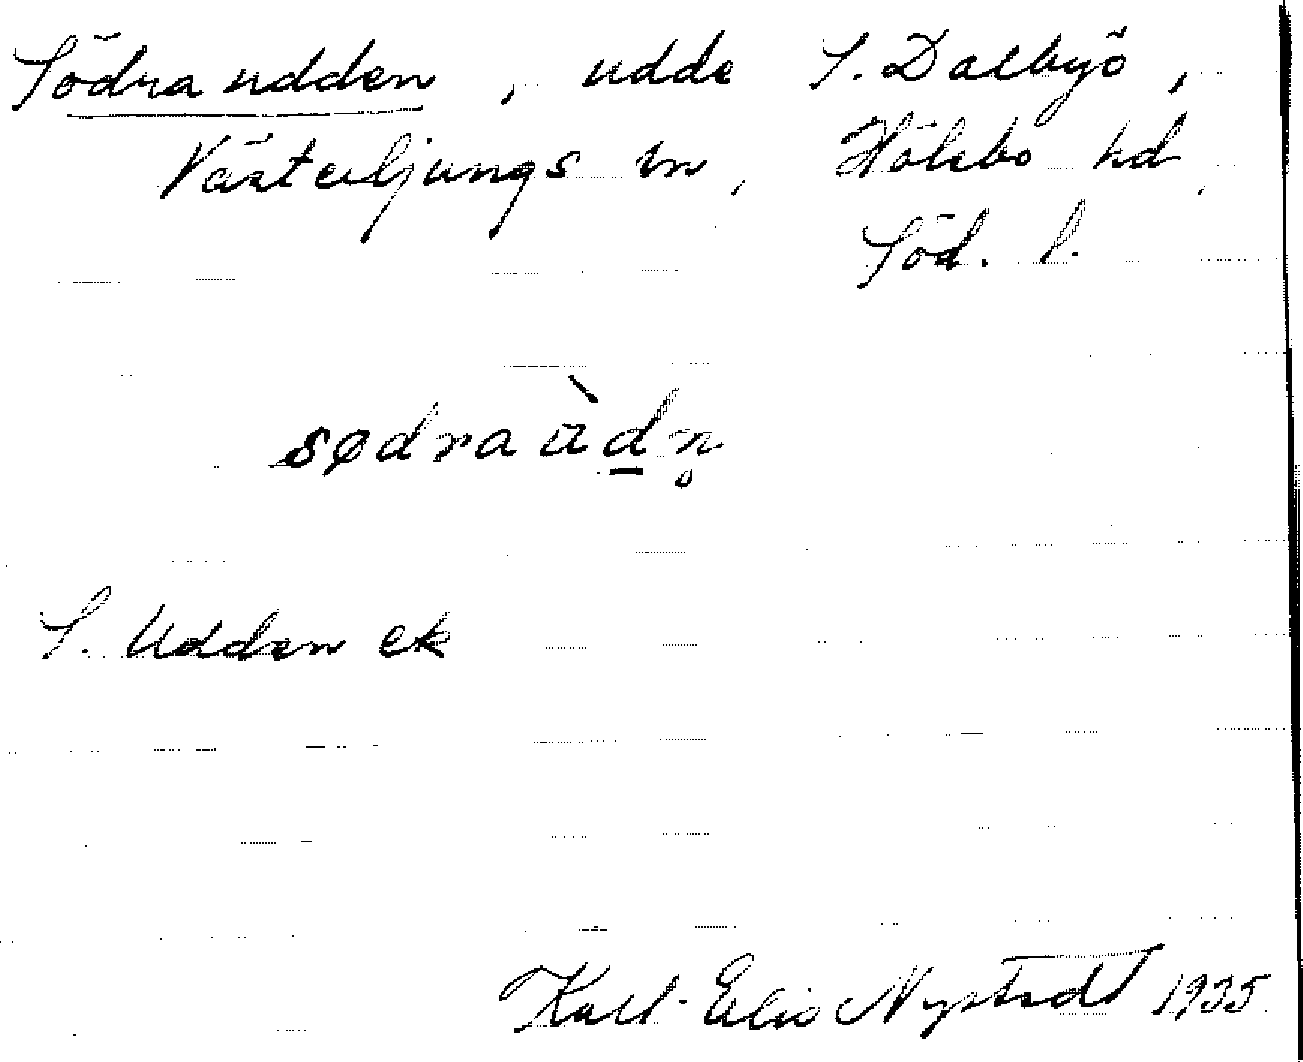 Södra udden, udde S. Dalbyö,
Västerljungs sn, Hölebo hd,
Söd. l.
sødra ùdn̥
S. Udden ek
Karl-Elis Nystedt 1935.